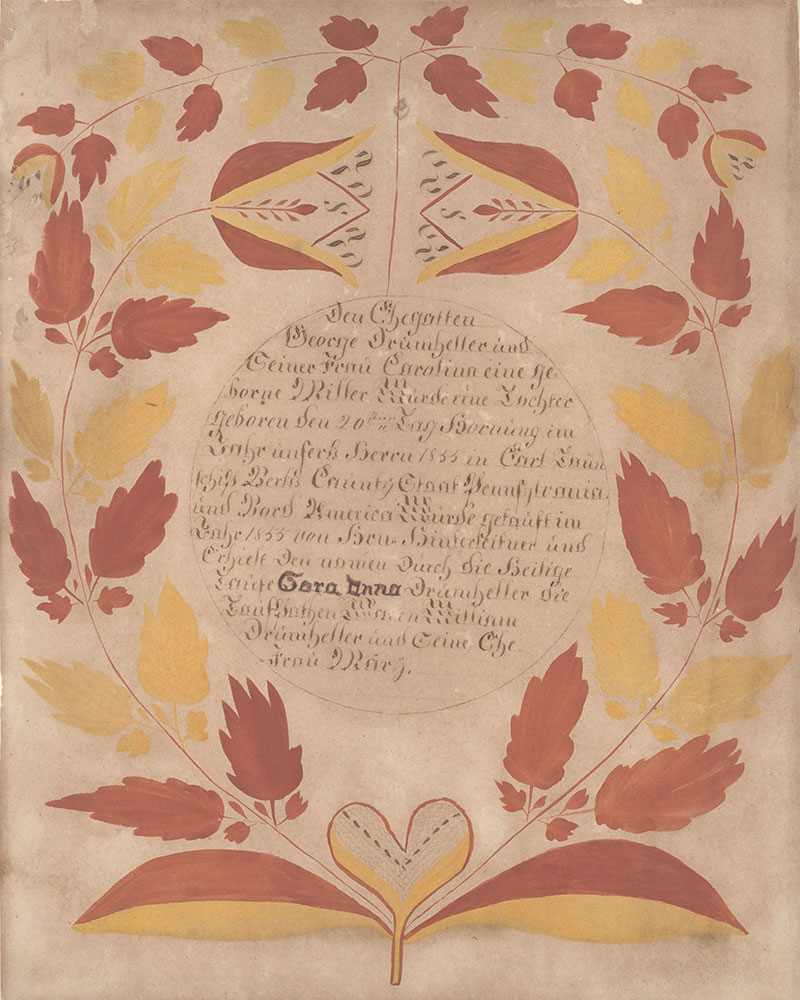 Den Ehegatten
George Drumheller und
Seiner Frau Carolina eine ge-
borne Miller Wurde eine Tochter
geboren den 20ten Tag Hornung im
Jahr unsers Herrn 1855 in Earl Taun
schip Berks Caunty Staat Pennsylvania
und Nord America Wurde getauft im
Jahr 1855 von Hrn. Hinterleitner und
Erhielt den namen Durch die Heilige
Taufe Sara Anna Drumheller die
Taufpathen Waren William
Drumheller und Seine Ehe-
Frau Mary.